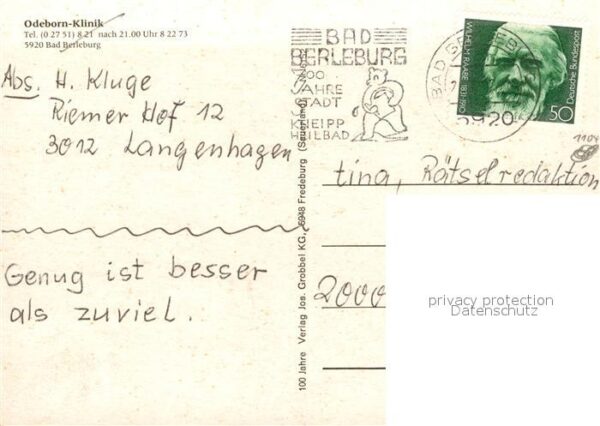 Odeborn-Klinik
Tel. (0 27 51) 8 21 nach 21.00 Uhr 8 22 73
5920 Bad Berleburg
Abs. H. Kluge
Riemer Hof 12
3012 Langenhagen
Genug ist besser
als zuviel.
100 Jahre Verlag Jos. Grobbel KG., 5948 Fredeburg (Sauerland)
BAD
BERLEBURG
700
JAHRE
STADT
KNEIPP
HEILBAD
BAD
5920
WILHELM RAABE 1831-1910
Deutsche Bundespost
50
1104
tina, Rätselredaktion
2000
privacy protection
Datenschutz